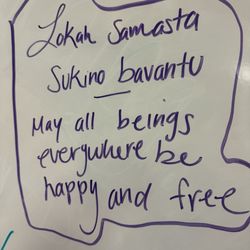 Lokah Samasta
Sukino bavantu
May all beings
everywhere be
happy and free